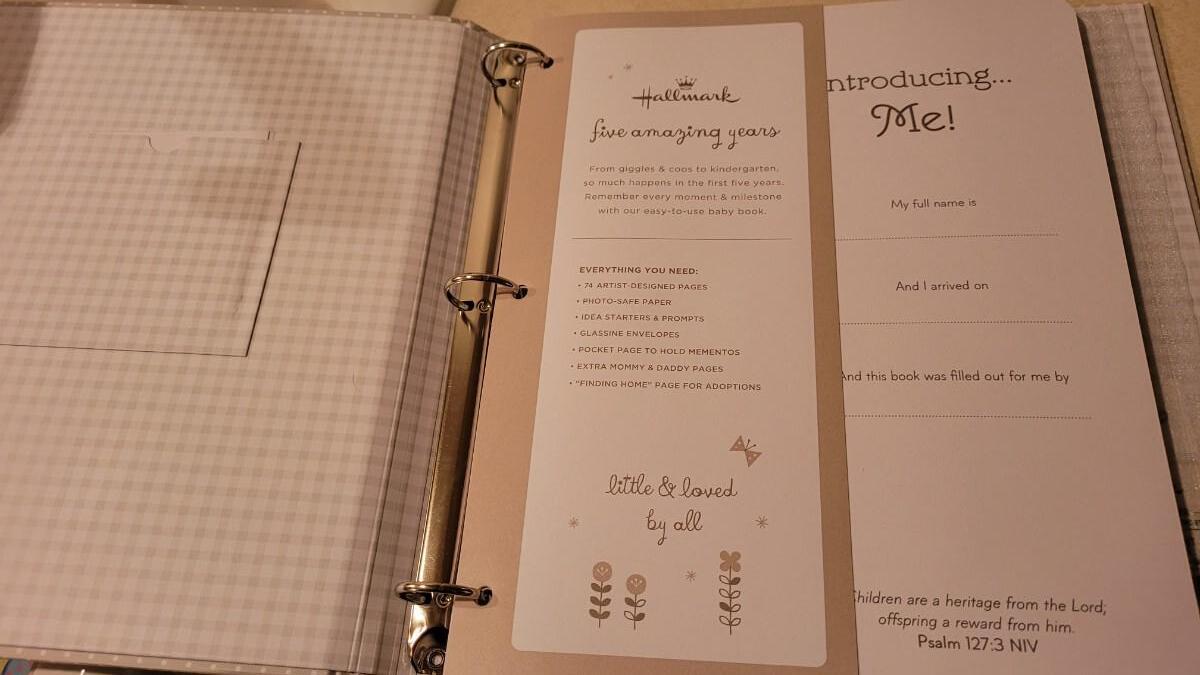 Hallmark
five amazing years
From giggles & coos to kindergarten,
so much happens in the first five years.
Remember every moment & milestone
with our easy-to-use baby book.
EVERYTHING YOU NEED:
• 74 ARTIST-DESIGNED PAGES
• PHOTO-SAFE PAPER
• IDEA STARTERS & PROMPTS
• GLASSINE ENVELOPES
• POCKET PAGE TO HOLD MEMENTOS
• EXTRA MOMMY & DADDY PAGES
• "FINDING HOME" PAGE FOR ADOPTIONS
little & loved
by all
ntroducing...
Me!
My full name is
And I arrived on
And this book was filled out for me by
Children are a heritage from the Lord;
offspring a reward from him.
Psalm 127:3 NIV